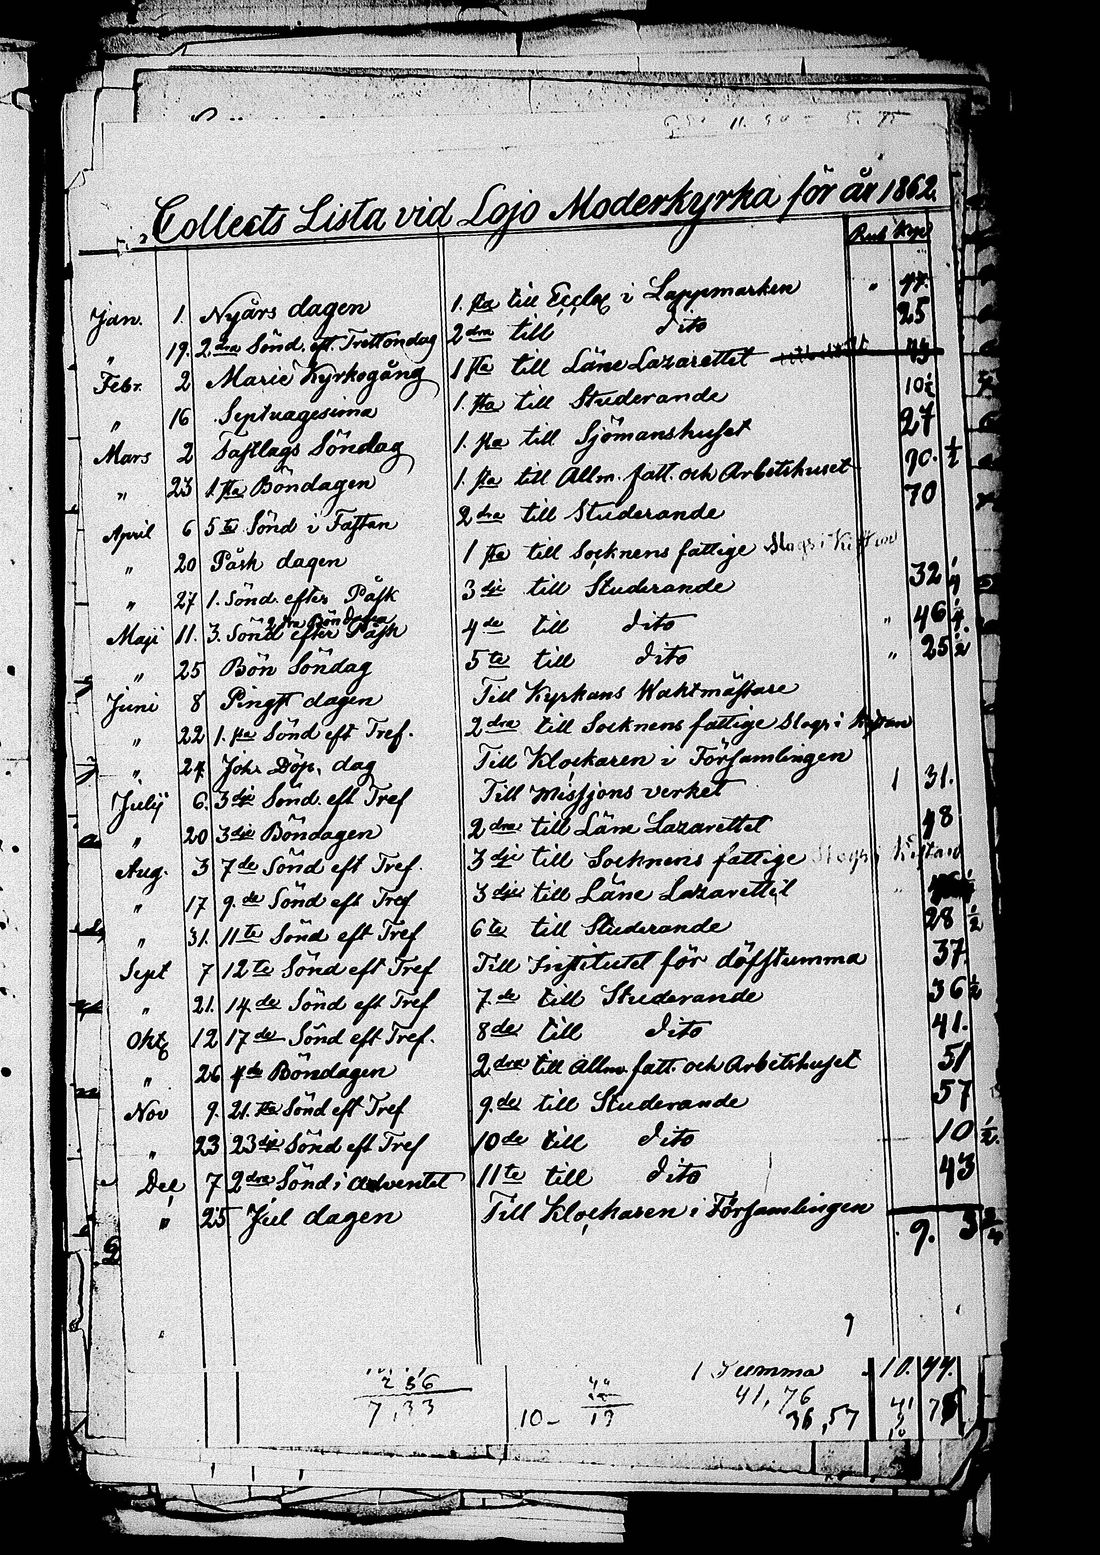 Collects Lista vid Lojo Moderkyrka för år 1862.
Rub Kop
Jan. 1. Nyårs dagen 1. sta till Eccles i Lappmarken " 44.
" 19. 2. dra Sönd. eft. Trettondag 2 dra till dito 25
Febr. 2 Mariæ Kyrkogång 1 sta till Läns Lazarettet 43
" 16 Septuagesima 1. sta till Studerande 10 1/2
Mars 2 Fastlags Söndag 1. sta till Sjömanshuset 27
" 23 1. sta Böndagen 1. sta till Allm. fatt. och Arbetshuset 90. 1/2
April 6 5 te Sönd i Fastan 2 dra till Studerande 70
" 20 Påsk dagen 1 sta till Socknens fattige Slogs i Kistan
" 27 1. Sönd. efter Påsk 3 dje till Studerande 32 1/4
2 dra Böndagen
Maji 11. 3. Sönd efter Påsk 4 de till dito " 46 1/4.
" 25 Bön Söndag 5 te till dito " 25 1/2
Juni 8 Pingst dagen Till Kyrkans Waktmästare
" 22 1. sta Sönd eft Tref. 2 dra till Socknens fattige Slogs i Kistan
" 24 Joh. Döp. dag Till Klockaren i Församlingen
Julij 6. 3 dje Sönd. eft Tref Till Missjons verket 1 31.
" 20 3 dje Böndagen 2 dra till Läns Lazarettet 48
Aug. 3 7 de Sönd eft Tref. 3 dje till Socknens fattige Slogs i Kistan
" 17 9. de Sönd eft Tref 3 dje till Läns Lazarettet
" 31. 11 te Sönd eft Tref 6 te till Studerande 28 1/2
Sept 7 12 te Sönd eft Tref Till Institutet för döfstumma 37.
" 21. 14. de Sönd eft Tref 7. de till Studerande 36 1/2
Okt 12 17 de Sönd eft Tref. 8 de till dito 41.
" 26 4 de Böndagen 2 dra till Allm. fatt. och Arbetshuset 51
Nov 9. 21. sta Sönd eft Tref 9. de till Studerande 57
" 23 23 dje Sönd eft Tref 10 de till dito 10 1/2.
Dec 7 2 dra Sönd i adventet 11 te till dito 43
" 25 Jul dagen Till Klockaren i Församlingen
9. 3 3/4
9
Summa 10. 44.
256 41,76
7,33 10- 19 36,57